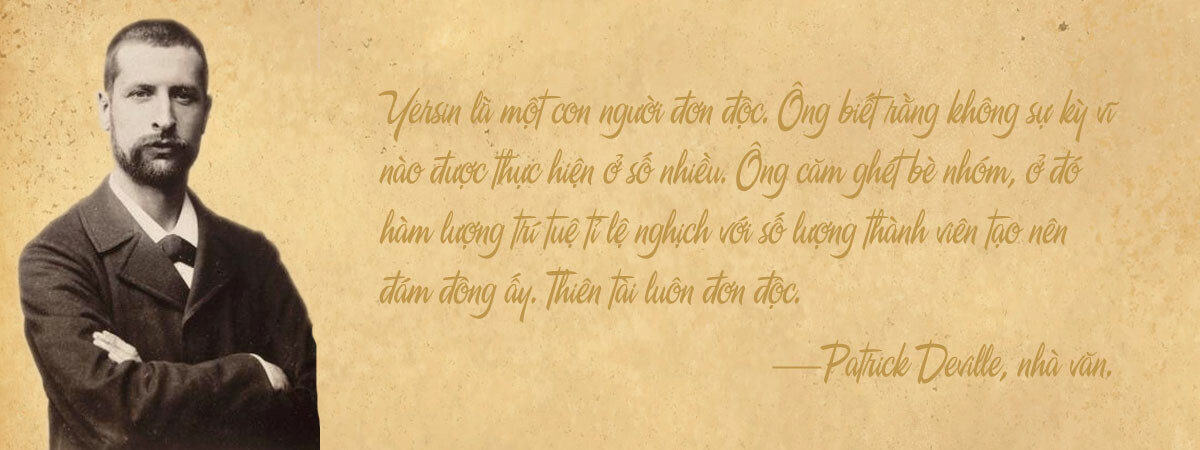 Yersin là một con người đơn độc. Ông biết rằng không sự kỳ vĩ
nào được thực hiện ở số nhiều. Ông căm ghét bè nhóm, ở đó
hàm lượng trí tuệ tỉ lệ nghịch với số lượng thành viên tạo nên
đám đông ấy. Thiên tài luôn đơn độc.
—Patrick Deville, nhà văn.